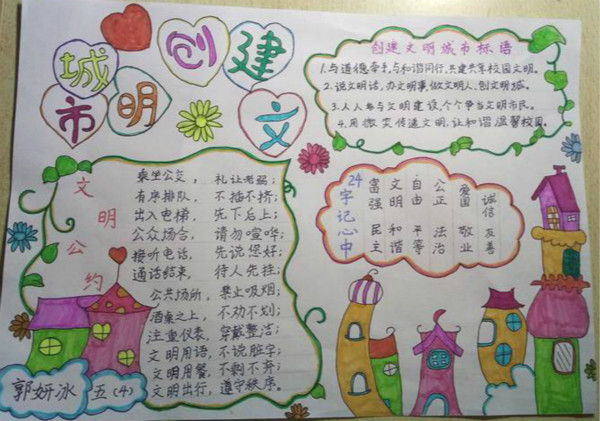 创建
文明
城市
创建文明城市标语
1.与道德牵手，与和谐同行，共建共享校园文明。
2.说文明话，办文明事，做文明人，创文明城。
3.人人参与文明建设，个个争当文明市民。
4.用微笑传递文明，让和谐温馨校园。
文明公约
乘坐公交，礼让老弱；
有序排队，不插不挤；
出入电梯，先下后上；
公众场合，请勿喧哗；
接听电话，先说您好；
通话结束，待人先挂；
公共场所，禁止吸烟；
酒桌之上，不劝不划；
注重仪表，穿戴整洁；
文明用语，不说脏字；
文明用餐，不剩不弃；
文明出行，遵守秩序。
24字记心中
富强 民主
文明 和谐
自由 平等
公正 法治
爱国 敬业
诚信 友善
郭妍冰 五（4）